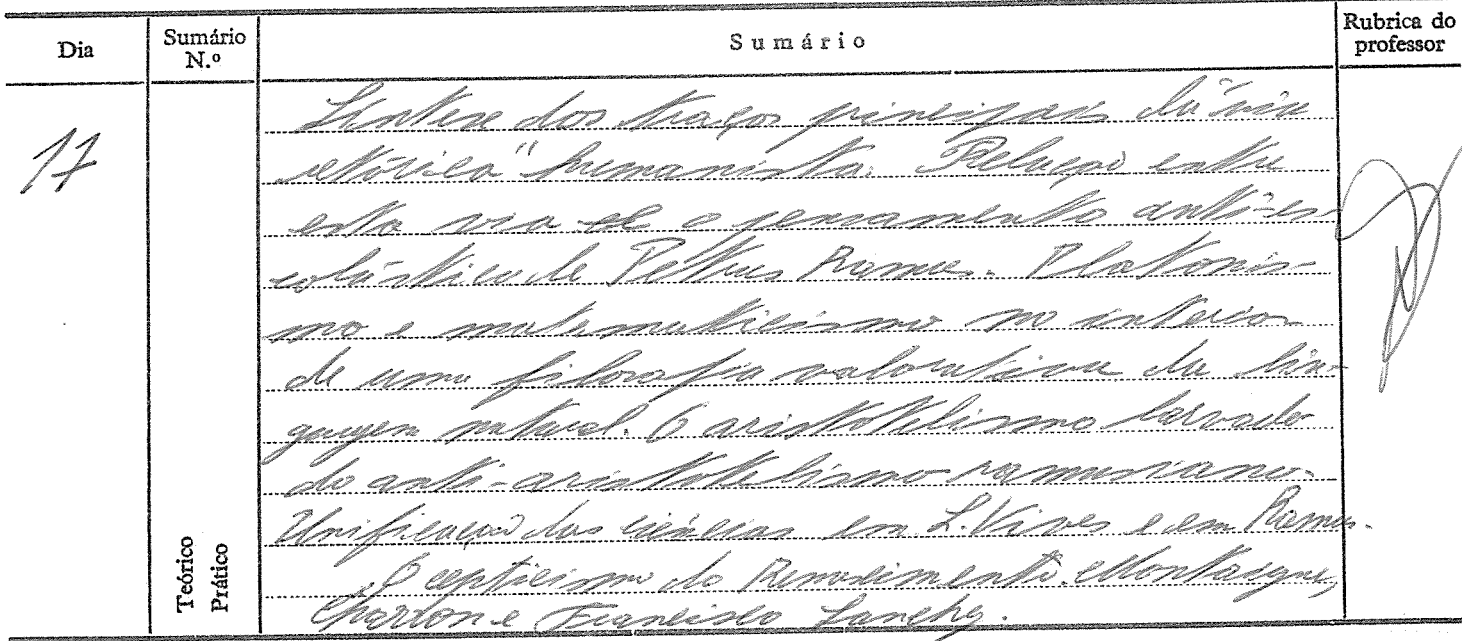 Dia
Sumário N.º
Sumário
Rubrica do professor
17
Teórico
Prático
Síntese dos traços principais da "via
retórica" humanista. Relação entre
esta via e o pensamento anti-es
colástico de Petrus Ramus. Platonis-
mo e matematicismo no interior
de uma filosofia valorativa da lin-
guagem natural. O aristotelismo larvado
do anti-aristotelismo ramusiano.
Unificação das ciências em L. Vives e em Ramus.
O cepticismo do Renascimento. Montaigne,
Charron e Francisco Sanches.